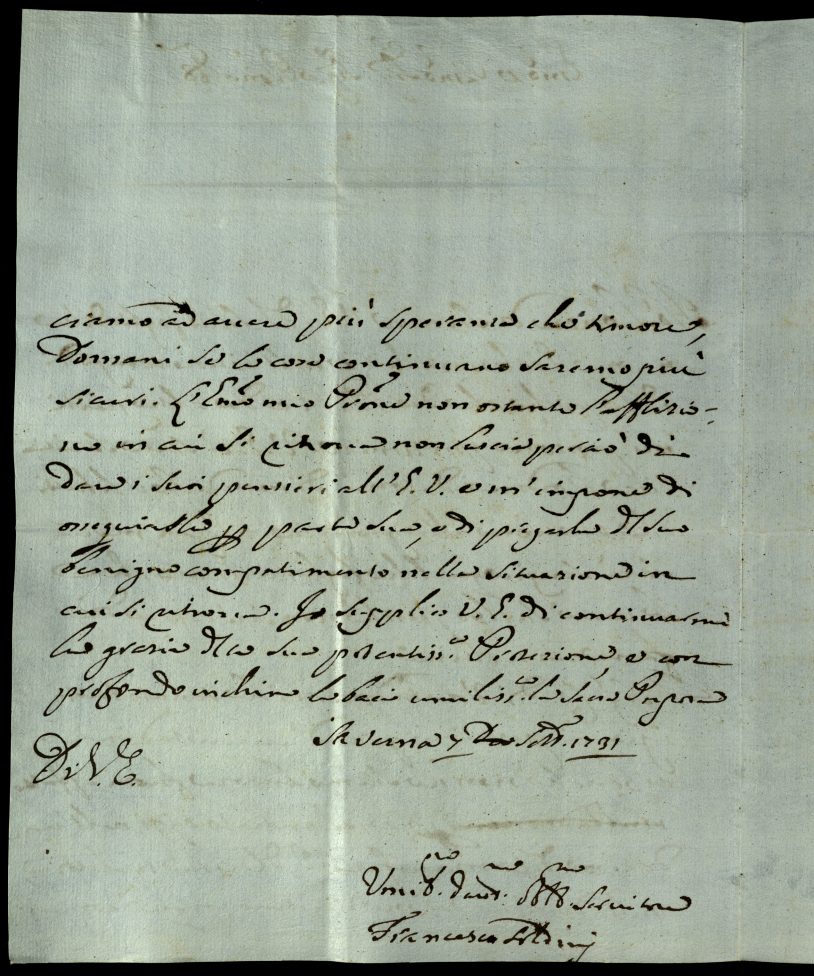 ciamo ad avere più speranza che timore,
Domani se le cose continuano saremo più
sicuri. L'Em̃o mio Pr̃one non ostante l'afflizio-
ne in cui si ritrova non lascia perciò di
dare i suoi pensieri all'E. V. e m'impone di
ossequiarla parte sua, e di pregarla del suo
benigno compatimento nella situazione in
cui si ritrova. Io supplico V. E. di continuarmi
le grazie della sua potentiss.a Protezione, e con
profondo inchino le bacio umiliss.te la Sacra Porpora
7 Sett. 1731
Di V. E.
Umil.mo Dev.mo Obb.mo Servitore
Francesco